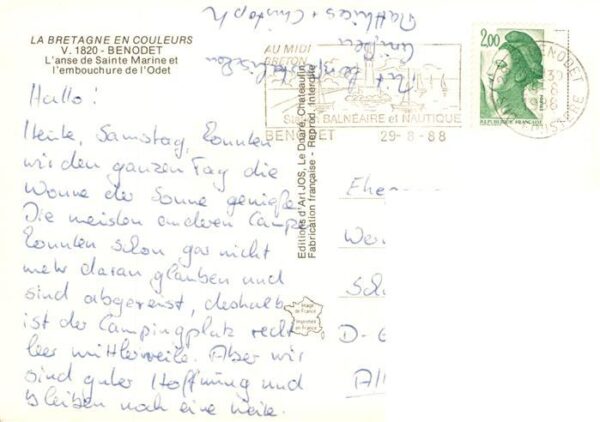 LA BRETAGNE EN COULEURS
V. 1820 - BENODET
L'anse de Sainte Marine et
l'embouchure de l'Odet
Hallo!
Heute, Samstag, konnten
wir den ganzen Tag die
Wonne der Sonne genießen
Die meisten anderen Camper
konnten schon gar nicht
mehr daran glauben und
sind abgereist, deshalb
ist der Campingplatz recht
leer mittlerweile. Aber wir
sind guter Hoffnung und
bleiben noch eine Weile.
Matthias + Christoph
Editions d'Art JOS, Le Doaré, Chateaulin
Fabrication française - Reprod. Interdite
AU MIDI
BRETON
BALNÉAIRE et NAUTIQUE
BENODET
29-8-88
2,00
REPUBLIQUE FRANÇAISE
BENODET
FINISTERE
Image
de France
Imprimée
en France
D-6